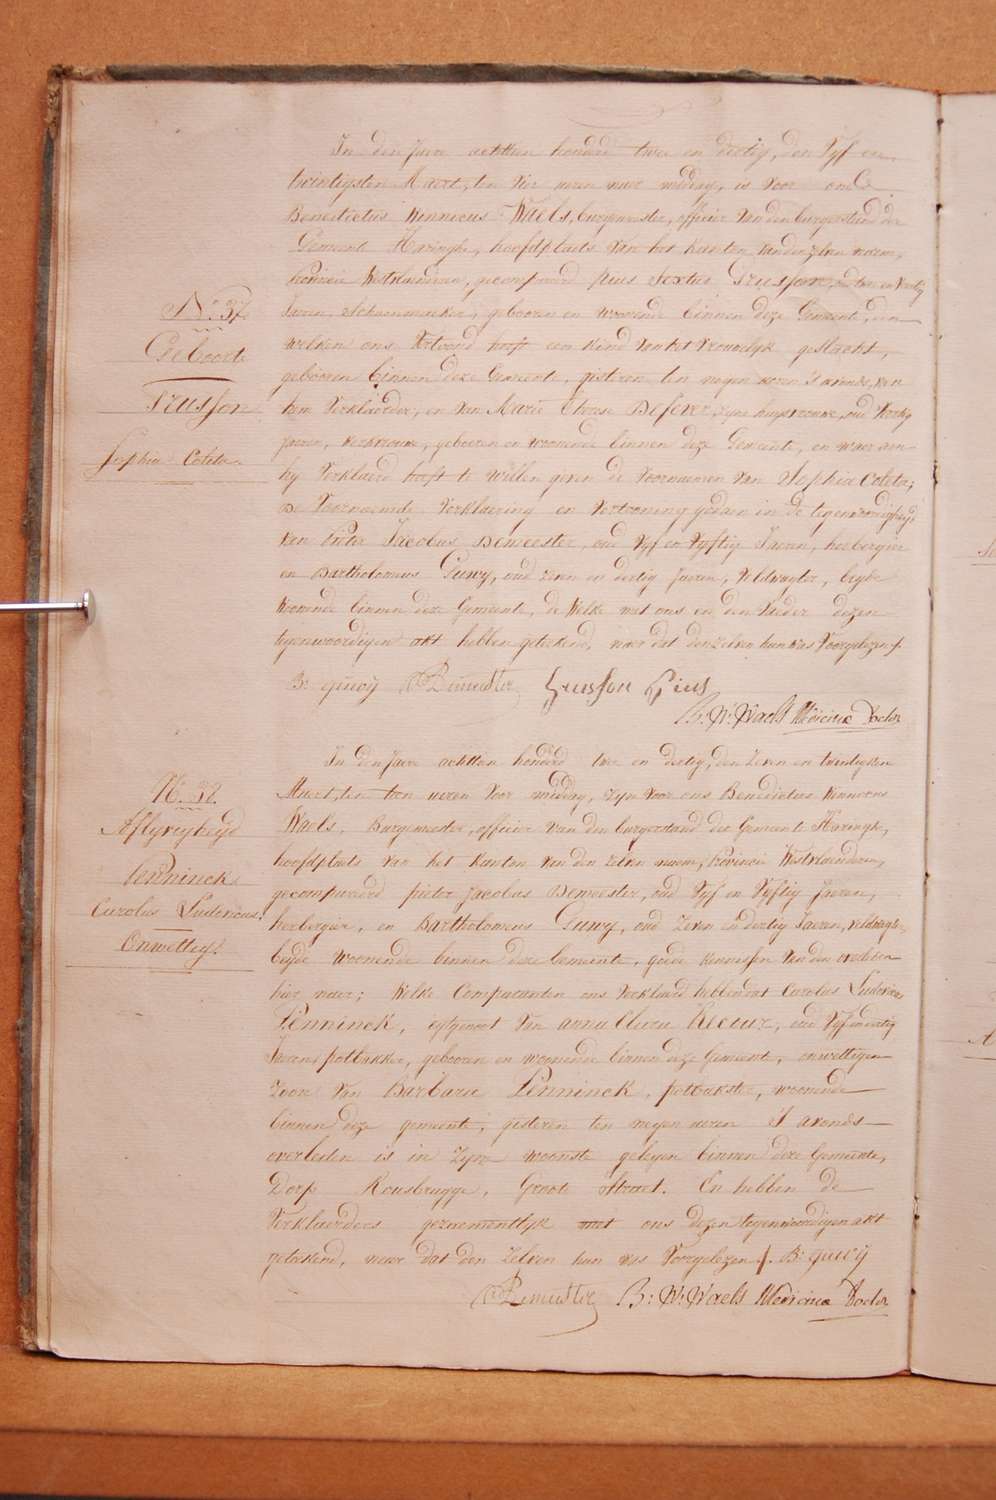 In den Jaere achttien honderd twee en dertig, den Vyf en
twintigsten Maert, ten vier uren naer middag, is voor ons
Benedictus Winnocus Waels, burgemeester, officier van den burgerstand der
Gemeente Haringhe, hoofdplaets van het Kanton van den zelven naem,
provincie Westvlaenderen, gecompareerd pius Sextus Trusson, oud twee en Veertig
N.° 37.
Jaeren, Schoenmaeker, gebooren en woonende binnen deze Gemeente, den
Geboorte
welken ons Vertoond heeft een Kind van het Vrouwelyk geslacht,
Trusson
gebooren binnen deze Gemeente, gisteren ten negen uren 's avonds, van
hem Verklaerder, en van Marie Therese Defever, zyne huysvrouwe, oud Veertig
Sophia Coleta.
Jaeren, Werkvrouwe, gebooren en woonende binnen deze Gemeente, en waer aen
hy Verklaerd heeft te willen geven de Voornaemen van Sophia Coleta;
De Voornoemde Verklaering en Vertooning gedaen in de tegenwoordigheyd
van pieter Jacobus Demeester, oud Vyf en Vyftig Jaeren, herbergier
en Bartholomeus Guwy, oud zeven en dertig Jaeren, Veldwagter, beyde
woonende binnen deze Gemeente, de Welke met ons en den Vaeder dezen
tegenwoordigen akt hebben geteekend, naer dat den zelven hun was Voorgelezen ./.
B: guwy PDemeester Trusson Pius
B: W: Waels Medicina Doctor
In den Jaere achttien honderd twee en dertig, den Zeven en twintigsten
N.° 38.
Maert, ten tien ueren voor middag, zyn voor ons Benedictus Winnocus
Aflyvigheyd
Waels, Burgemeester, officier van den burgerstand der Gemeente Haringhe,
hoofdplaets van het Kanton van den zelven naem, Provincie Westvlaenderen,
Penninck
gecompareerd pieter Jacobus Demeester, oud Vyf en Vyftig Jaeren,
Carolus Ludovicus.
herbergier, en Bartholomeus Guwy, oud Zeven en dertig Jaeren, veldwagter,
Onwettig.
beyde woonende binnen deze Gemeente, goede Kennissen van den overleden
hier naer; Welke Comparanten ons Verklaerd hebben dat Carolus Ludovicus
Penninck, egtgenoot van anna Clara Kleouz, oud Vyf en dertig
Jaeren, potbakker, gebooren en woonende binnen deze Gemeente, onwettigen
Zoon van Barbara Penninck, potbakster, woonende
binnen deze gemeente, gisteren ten negen ueren 's avonds
overleden is in zyne woonste gelegen binnen deze Gemeente,
Dorp Rousbrugge, Groote Straet. En hebben de
Verklaerders geznementlyk met ons dezen tegenwoordigen akt
geteekend, naer dat den Zelven hun was Voorgelezen ./. B: guwy
PDemeester B: W: Waels Medicina Doctor